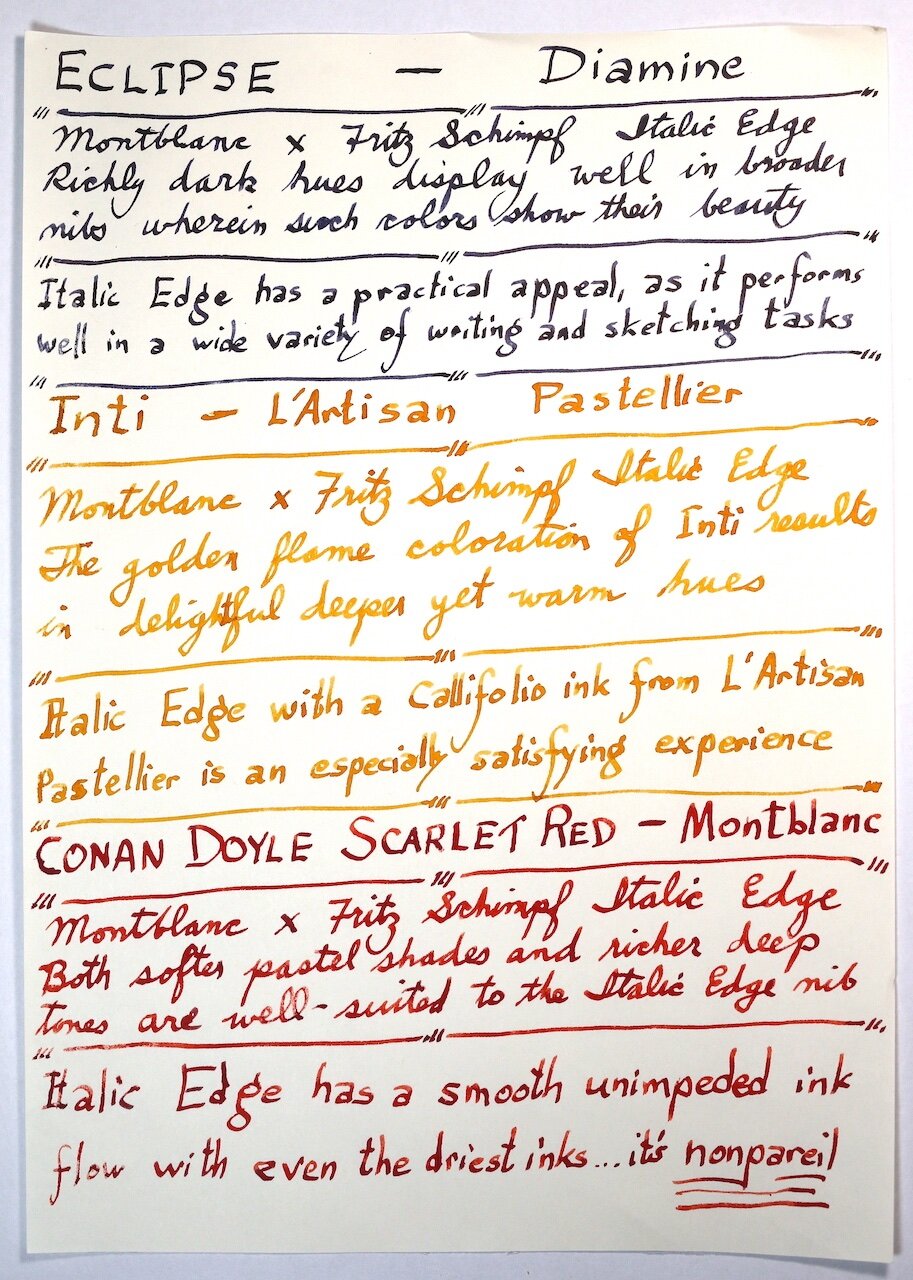 ECLIPSE — Diamine
Montblanc x Fritz Schimpf Italic Edge
Richly dark hues display well in broader
nibs wherein such colors show their beauty
Italic Edge has a practical appeal, as it performs
well in a wide variety of writing and sketching tasks
Inti – L'Artisan Pastellier
Montblanc x Fritz Schimpf Italic Edge
The golden flame coloration of Inti results
in delightful deeper yet warm hues
Italic Edge with a Callifolio ink from L'Artisan
Pastellier is an especially satisfying experience
CONAN DOYLE SCARLET RED – Montblanc
Montblanc x Fritz Schimpf Italic Edge
Both softer pastel shades and richer deep
tones are well-suited to the Italic Edge nib
Italic Edge has a smooth unimpeded ink
flow with even the driest inks...it's nonpareil